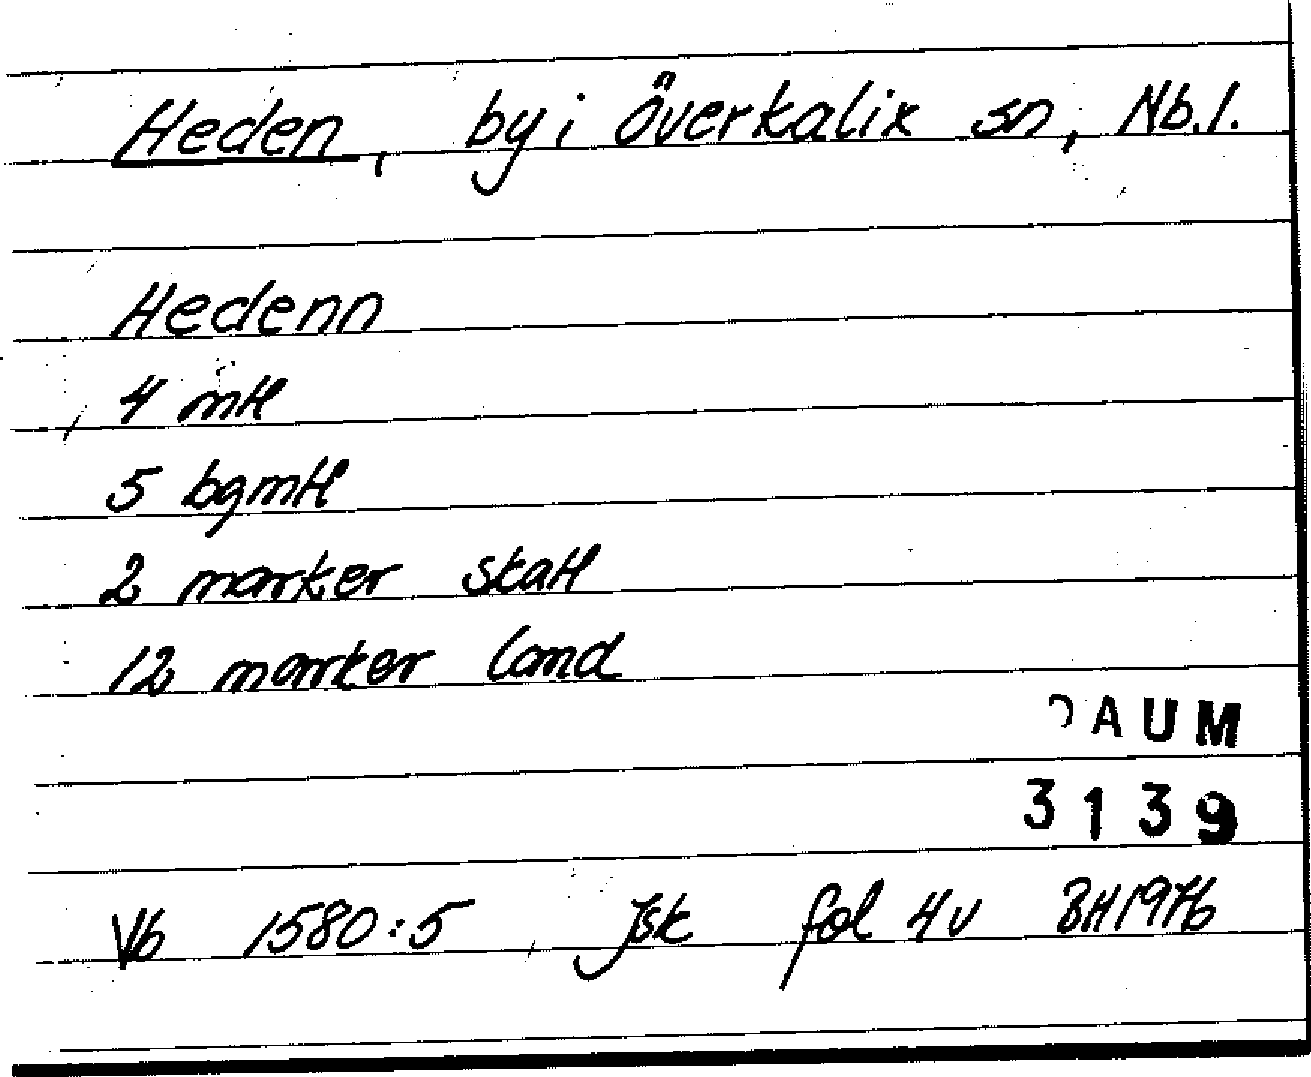 Heden, by i Överkalix sn, Nb.l.
Hedenn
4 mtl
5 bgmtl
2 marker skatt
12 marker land
DAUM
3139
Vb 1580:5, Jsk fol 4v BH1976